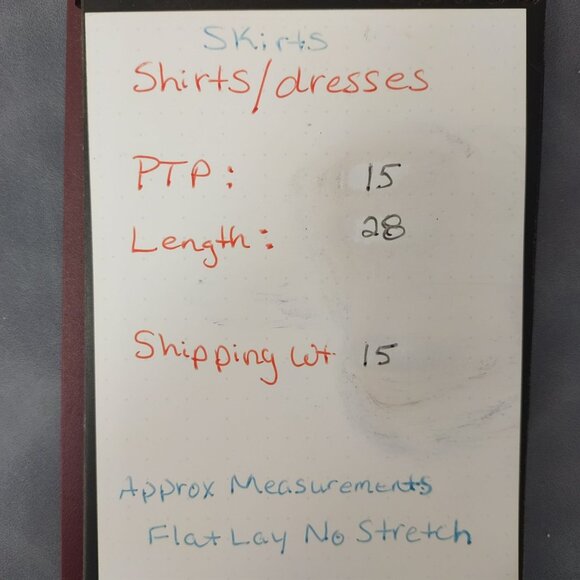 Skirts
Shirts/dresses
PTP: 15
Length: 28
Shipping Wt 15
Approx Measurements
Flat Lay No Stretch